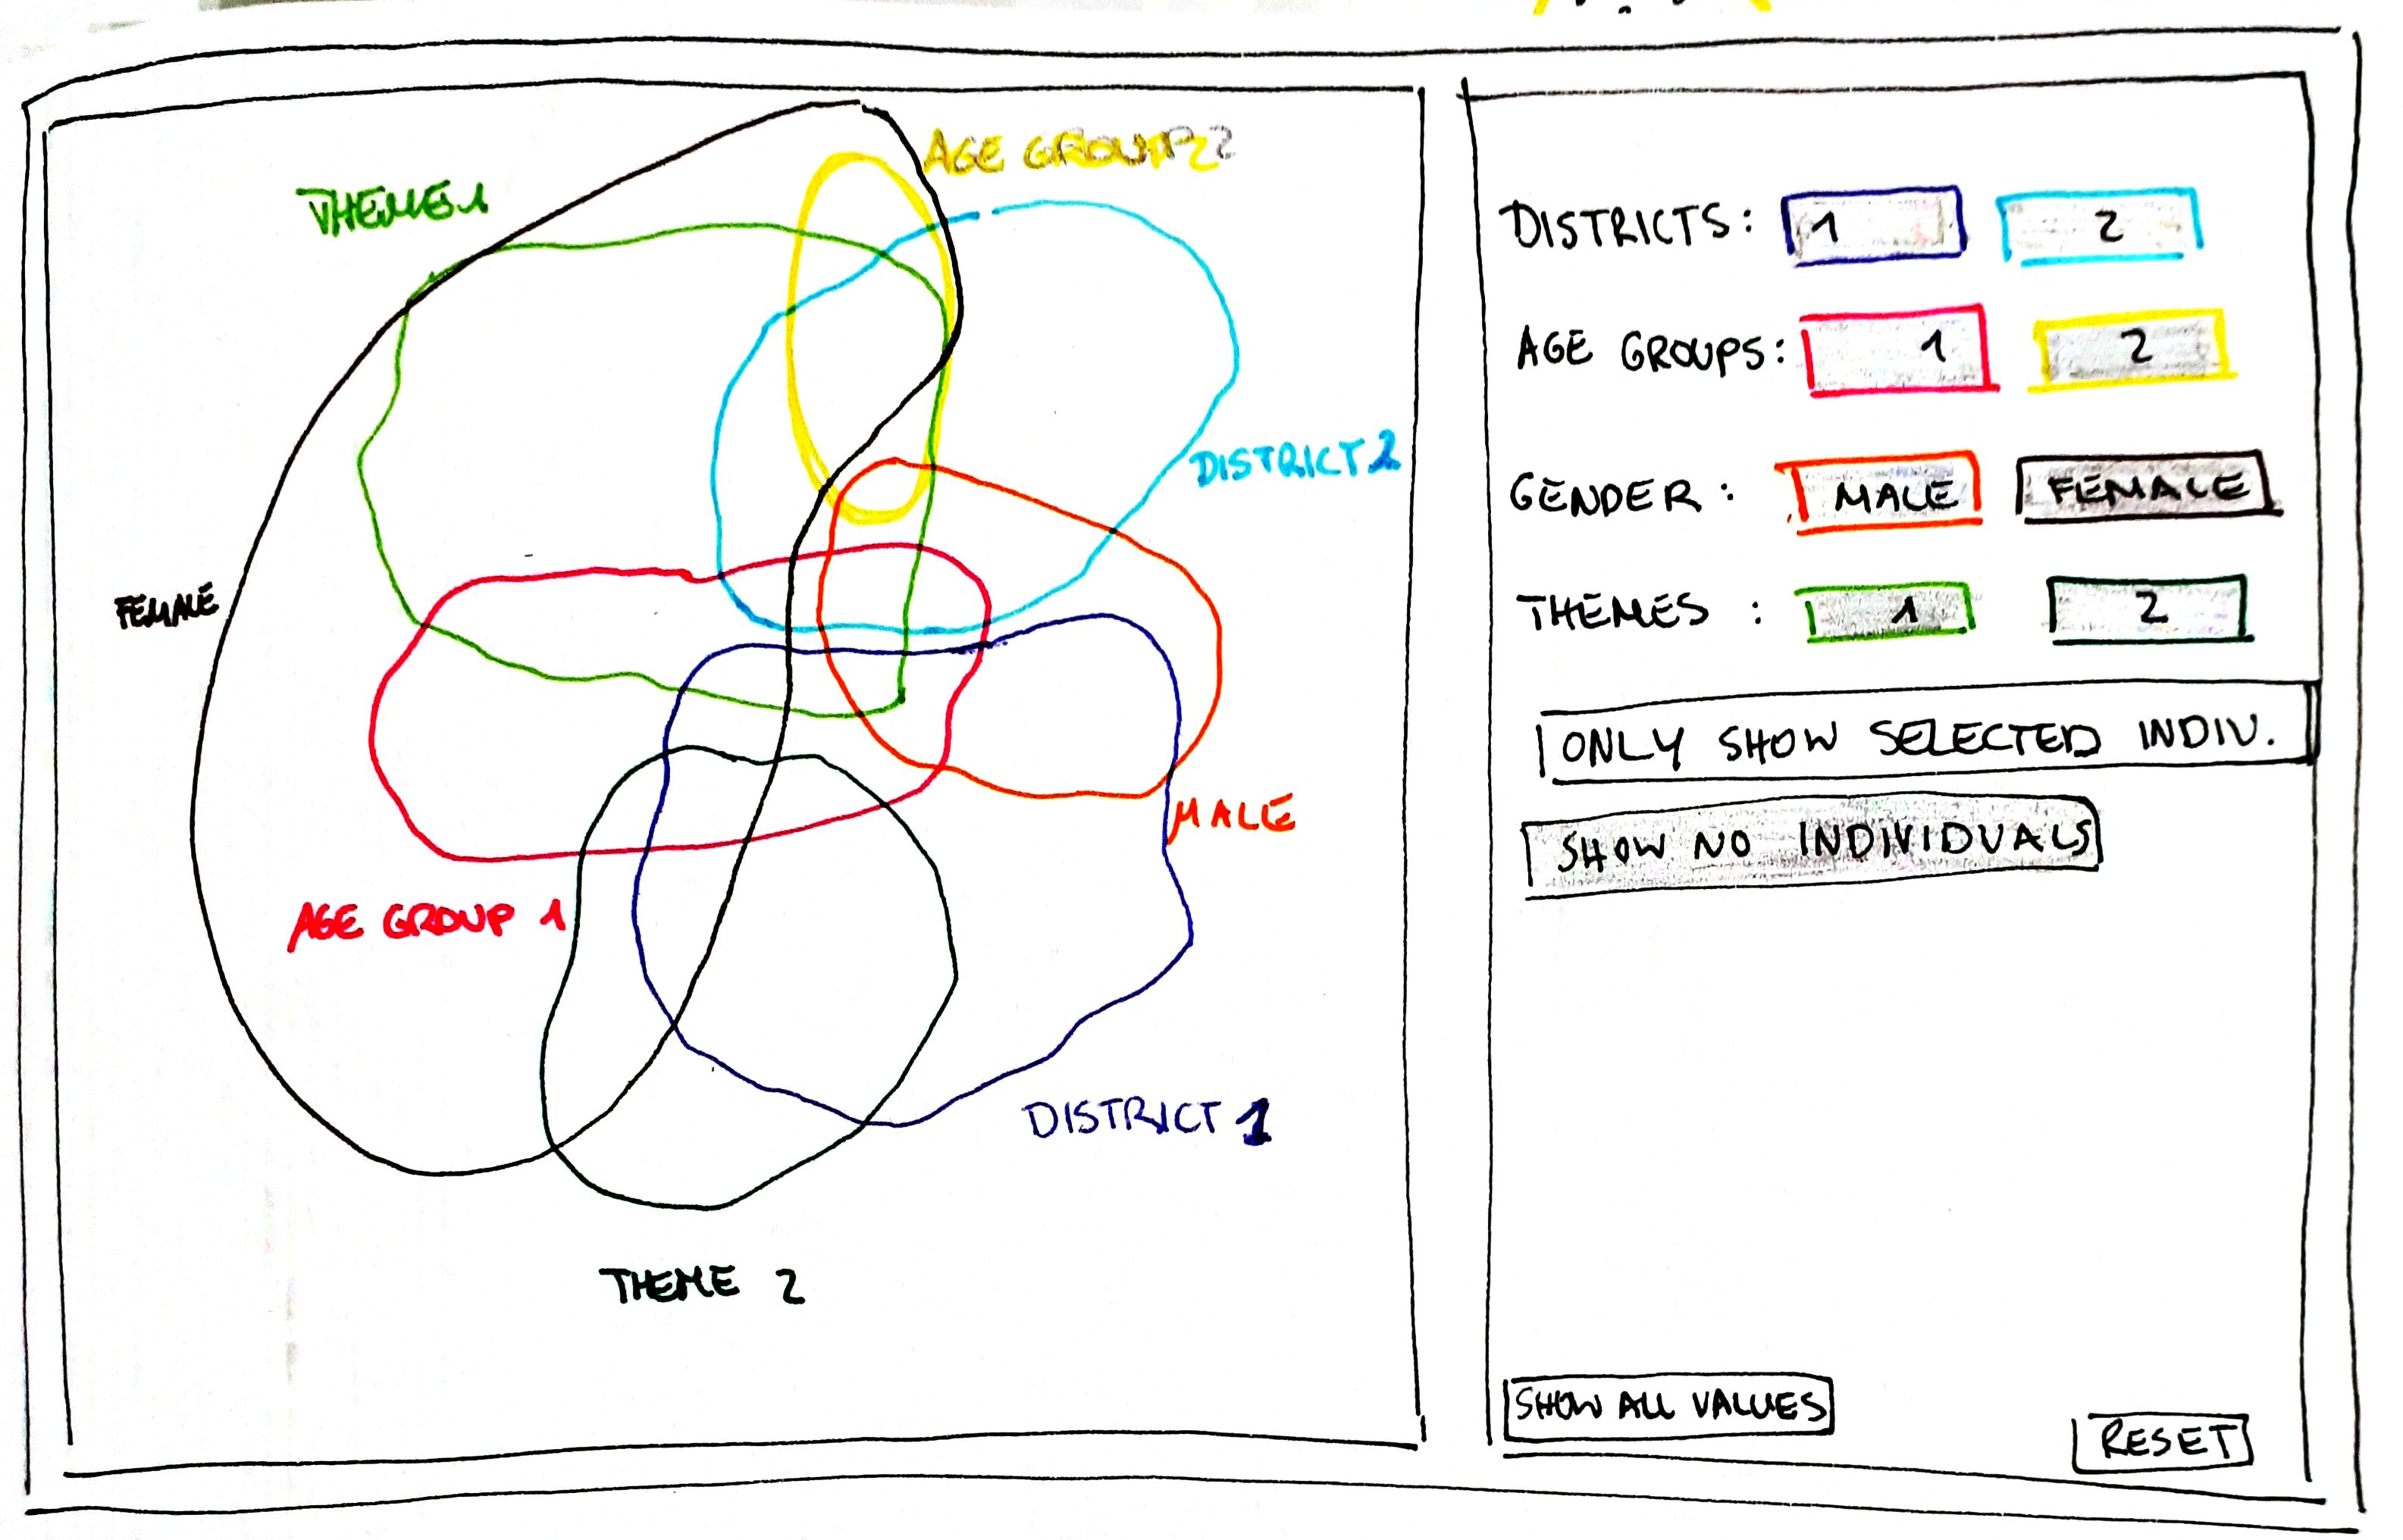 AGE GROUP 2
THEME 1
DISTRICT 2
FEMALE
MALE
AGE GROUP 1
DISTRICT 1
THEME 2
DISTRICTS: 1 2
AGE GROUPS: 1 2
GENDER: MALE FEMALE
THEMES : 1 2
ONLY SHOW SELECTED INDIV.
SHOW NO INDIVIDUALS
SHOW ALL VALUES
RESET